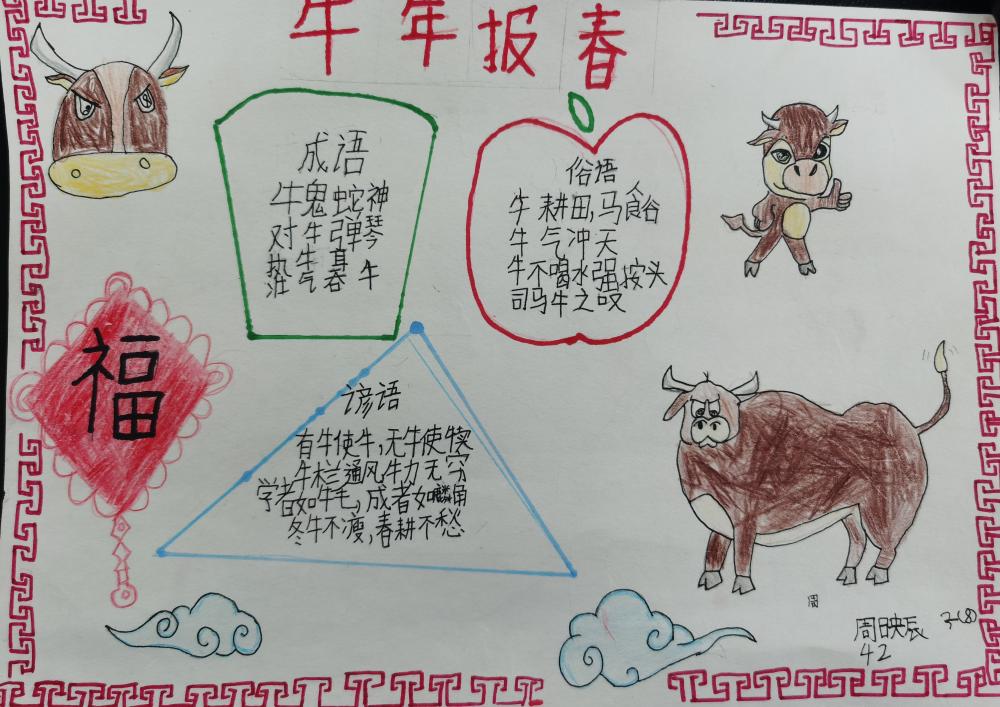 牛年报春
成语
牛鬼蛇神
对牛弹琴
执牛耳
汗气春牛
俗语
牛耕田,马食谷
牛气冲天
牛不喝水强按头
司马牛之叹
福
谚语
有牛使牛,无牛使犊
牛栏通风牛力无穷
学者如牛毛,成者如麟角
冬牛不瘦,春耕不愁
周
周映辰
42